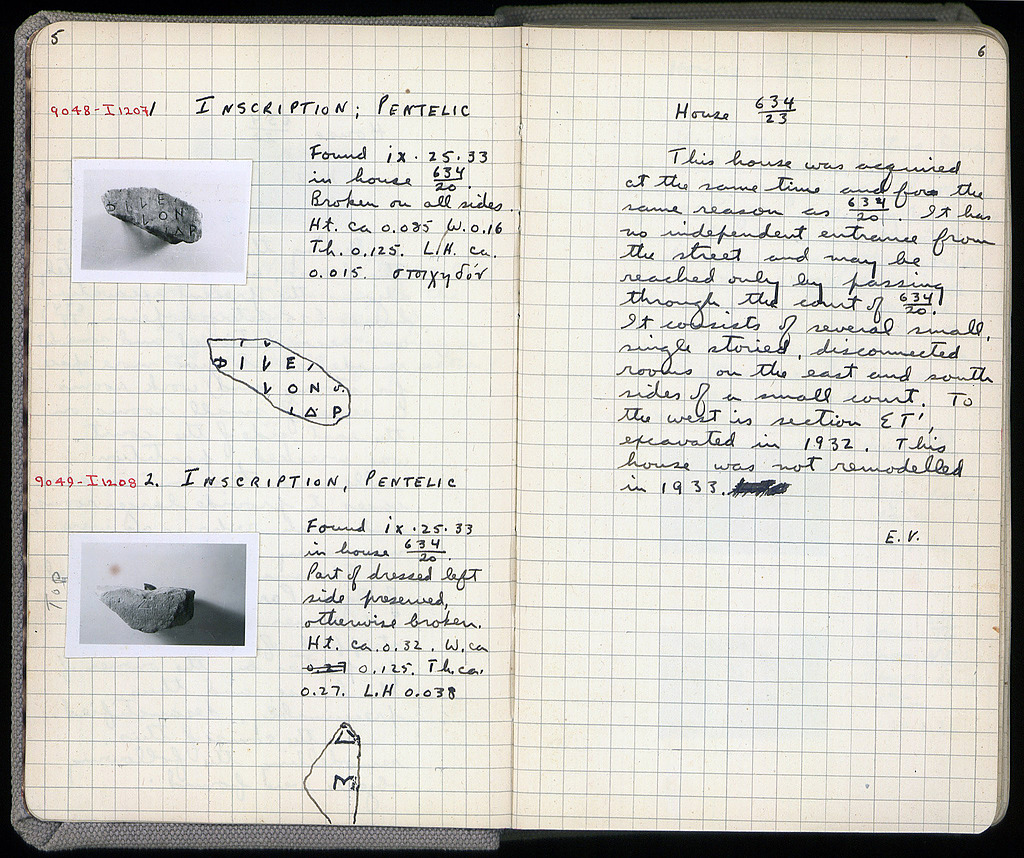 5
9048-I1207 1 INSCRIPTION; PENTELIC
Found ix.25.33
in house 634/20.
Broken on all sides.
Ht. ca 0.085 W. 0.16
Th. 0.125. L.H. ca.
0.015. στοιχηδόν
Φ Ι Ι Ε
Ο Ν
Δ Ρ
9049-I1208 2. INSCRIPTION, PENTELIC
Found ix.25.33
in house 634/20.
Part of dressed left
side preserved,
otherwise broken.
Ht. ca. 0.32. W. ca
0.27 0.125. Th. ca.
0.27. L.H 0.038
TOP
Δ
Μ
6
House 634/23
This house was acquired
at the same time and for the
same reason as 634/20. It has
no independent entrance from
the street and may be
reached only by passing
through the court of 634/20.
It consists of several small,
single storied, disconnected
rooms on the east and south
sides of a small court. To
the west is section ΣΤ',
excavated in 1932. This
house was not remodelled
in 1933.
E.V.